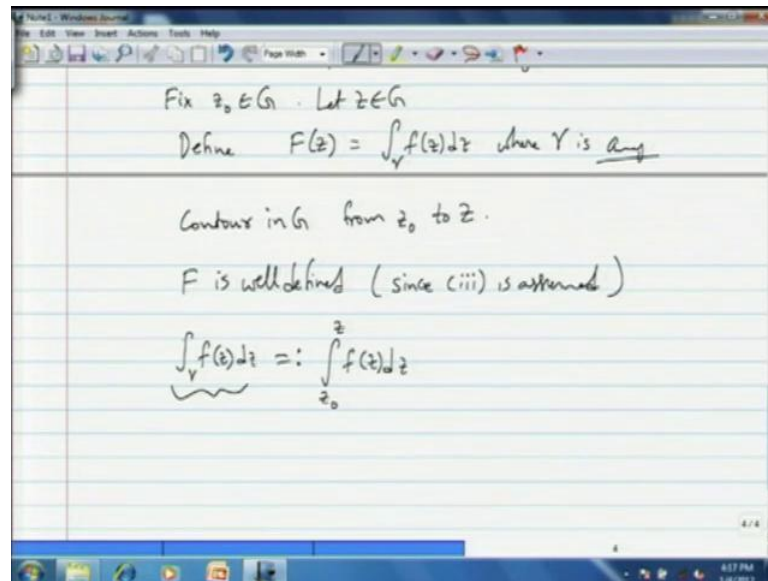 Note1 - Windows Journal
File Edit View Insert Actions Tools Help
Page Width
Fix z₀ ∈ G . Let z ∈ G
Define F(z) = ∫_γ f(z)dz where γ is any
Contour in G from z₀ to z.
F is well defined (since (iii) is assumed)
∫_γ f(z)dz =: ∫_{z₀}^{z} f(z)dz
4/4
4
4:17 PM